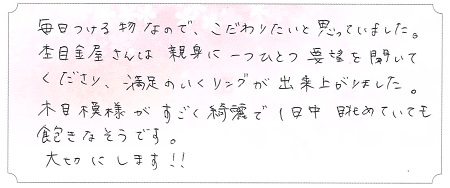 毎日つける物なので、こだわりたいと思っていました。
杢目金屋さんは 親身に一つひとつ 要望を聞いて
くださり、満足のいくリングが 出来上がりました。
木目模様がすごく綺麗で1日中 眺めていても
飽きなそうです。
大切にします!!